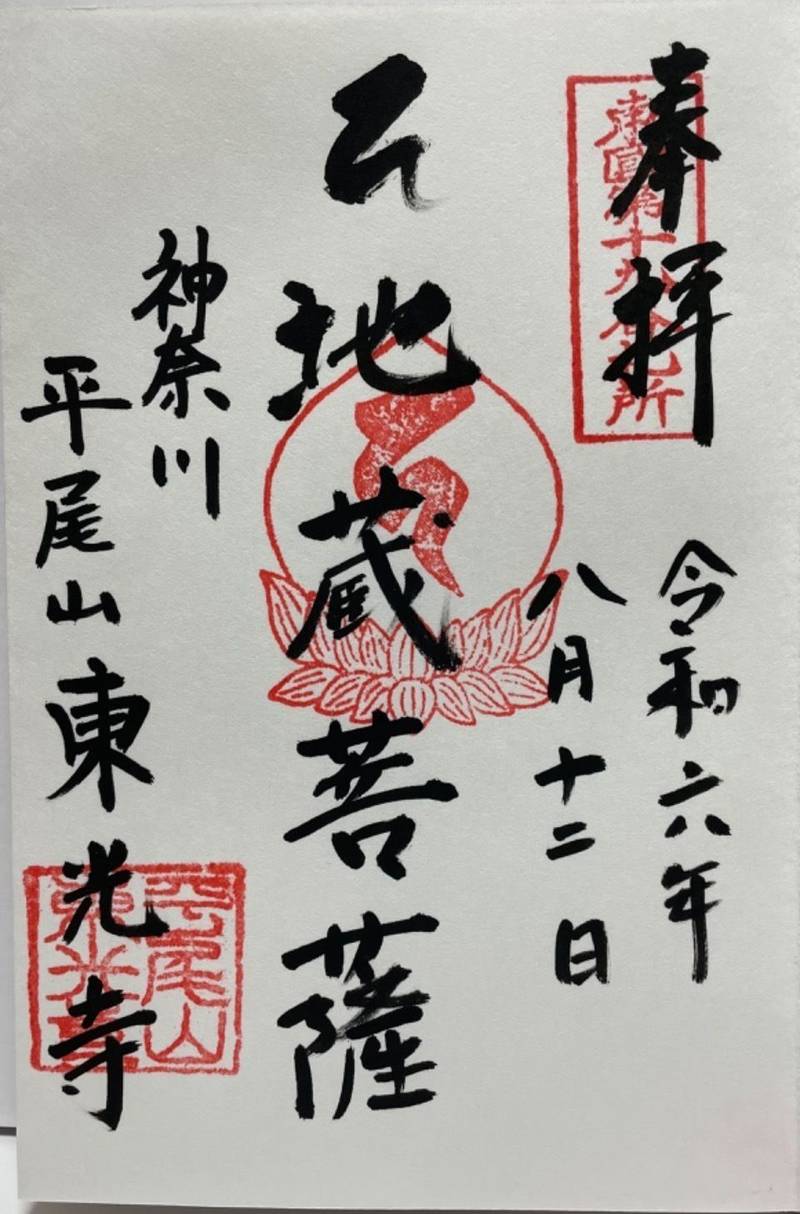 奉拝
東國第十九番札所
令和六年
八月十二日
地蔵菩薩
神奈川
平尾山東光寺
平尾山
東光寺